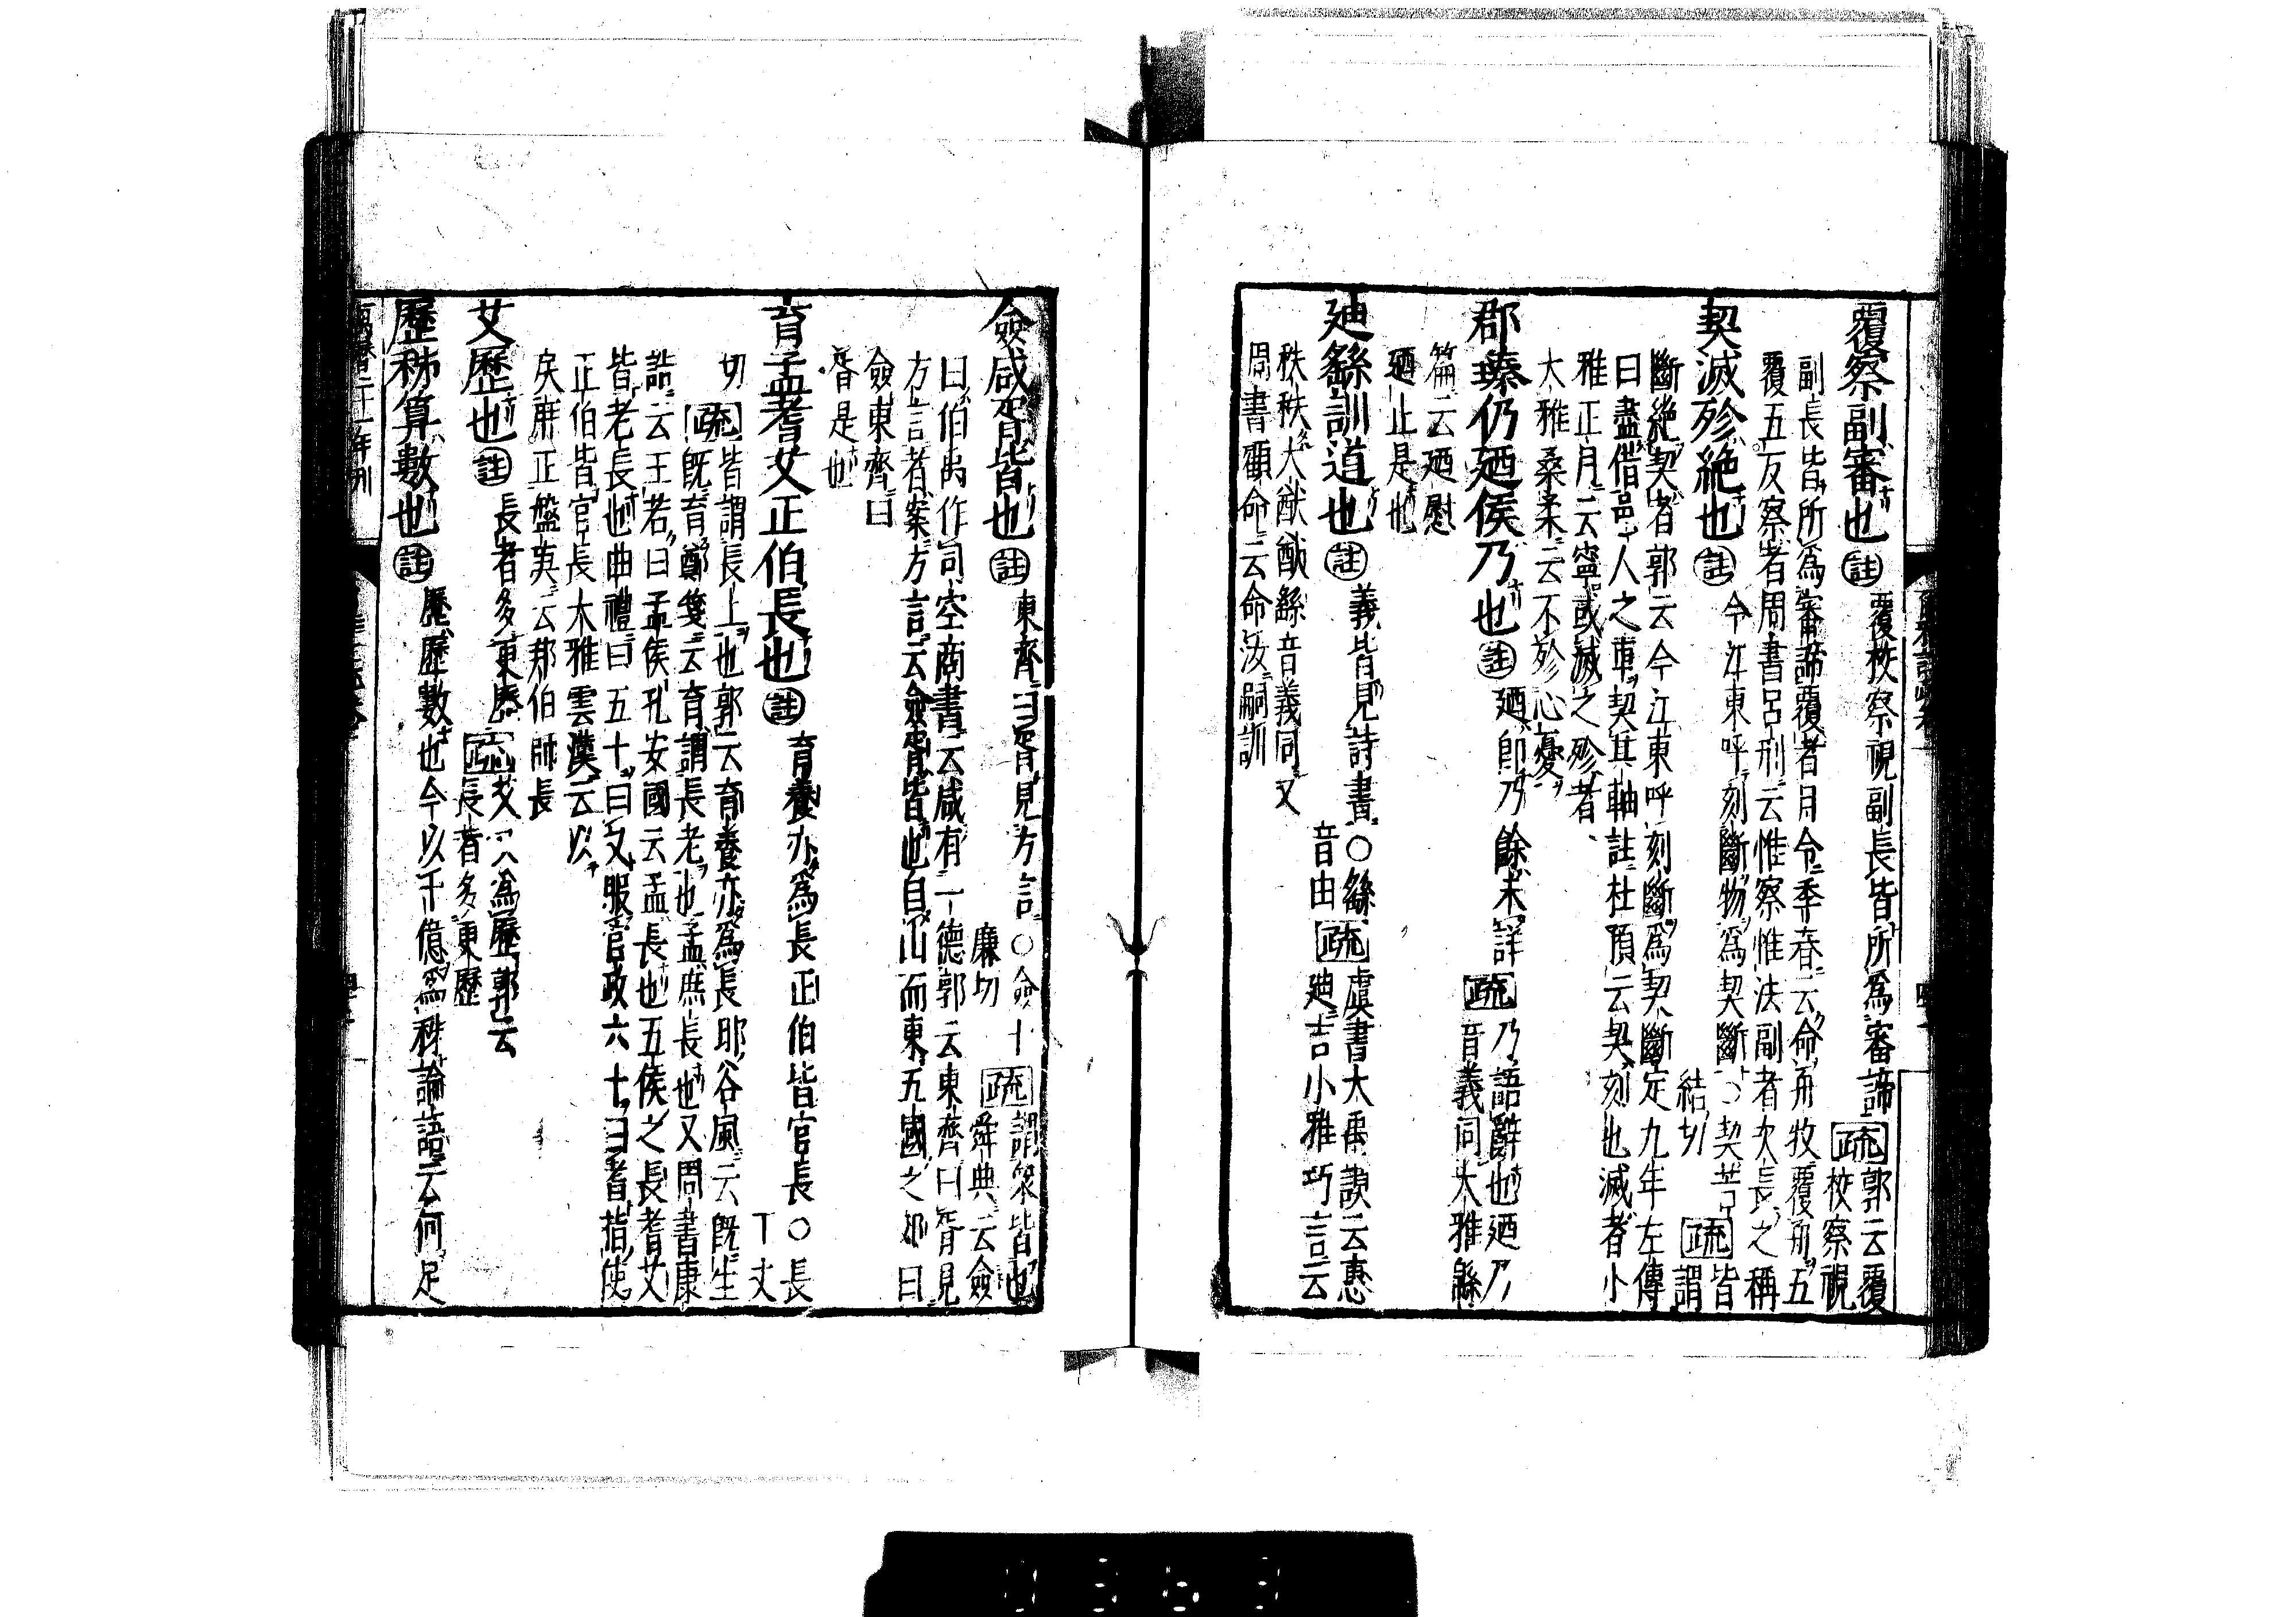 覆察副審也註覆校察視副長皆所爲審諦疏郭云覆
校察視
副長皆所爲審諦覆者月令季春云命舟牧覆舟五
覆五反察者周書呂刑云惟察惟法副者次長之稱
契滅殄絶也註今江東呼刻斷物爲契斷○契苦
結切疏皆
謂
斷絶契者郭云今江東呼刻斷爲契斷定九年左傳
曰盡借邑人之車契其軸註杜預云契刻也滅者小
雅正月云寧或滅之殄者
大雅桑柔云不殄心憂
郡臻仍迺侯乃也註迺即乃餘未詳疏乃語辭也迺乃
音義同大雅緜
篇云迺慰
迺止是也
迪繇訓道也註義皆見詩書○繇
音由疏虞書大禹謨云惠
迪吉小雅巧言云
秩秩大猷猷繇音義同又
周書顧命云命汝嗣訓
僉咸胥皆也註東齊曰胥見方言○僉十
廉切疏謂衆皆也
舜典云僉
曰伯禹作司空商書云咸有一德郭云東齊曰胥見
方言者案方言云僉胥皆也自山而東五國之郊曰
僉東齊曰
胥是也
育孟耆艾正伯長也註育養亦爲長正伯皆官長○長
丁丈
切疏皆謂長上也郭云育養亦爲長耶谷風云既生
既育鄭箋云育謂長老也孟庶長也又周書康
誥云王若曰孟侯孔安國云孟長也五侯之長耆艾
皆老長也曲禮曰五十曰艾服官政六十曰耆指使
正伯皆官長大雅雲漢云以
戾庶正盤庚云邦伯師長
艾歷也註長者多更歷疏艾又爲歷郭云
長者多更歷
歷秭算數也註歷歷數也今以十億爲秭論語云何足